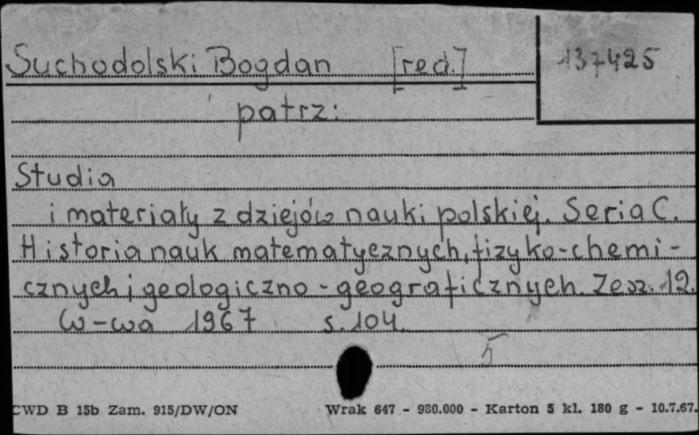 Suchodolski Bogdan [red.] 137425
patrz:
Studia
i materiały z dziejów nauki polskiej. Seria C.
Historia nauk matematycznych, fizyko-chemi-
cznych i geologiczno-geograficznych. Zesz. 12.
W-wa 1967 s. 104.
5
CWD B 15b Zam. 915/DW/ON Wrak 647 - 980.000 - Karton 5 kl. 180 g - 10.7.67.